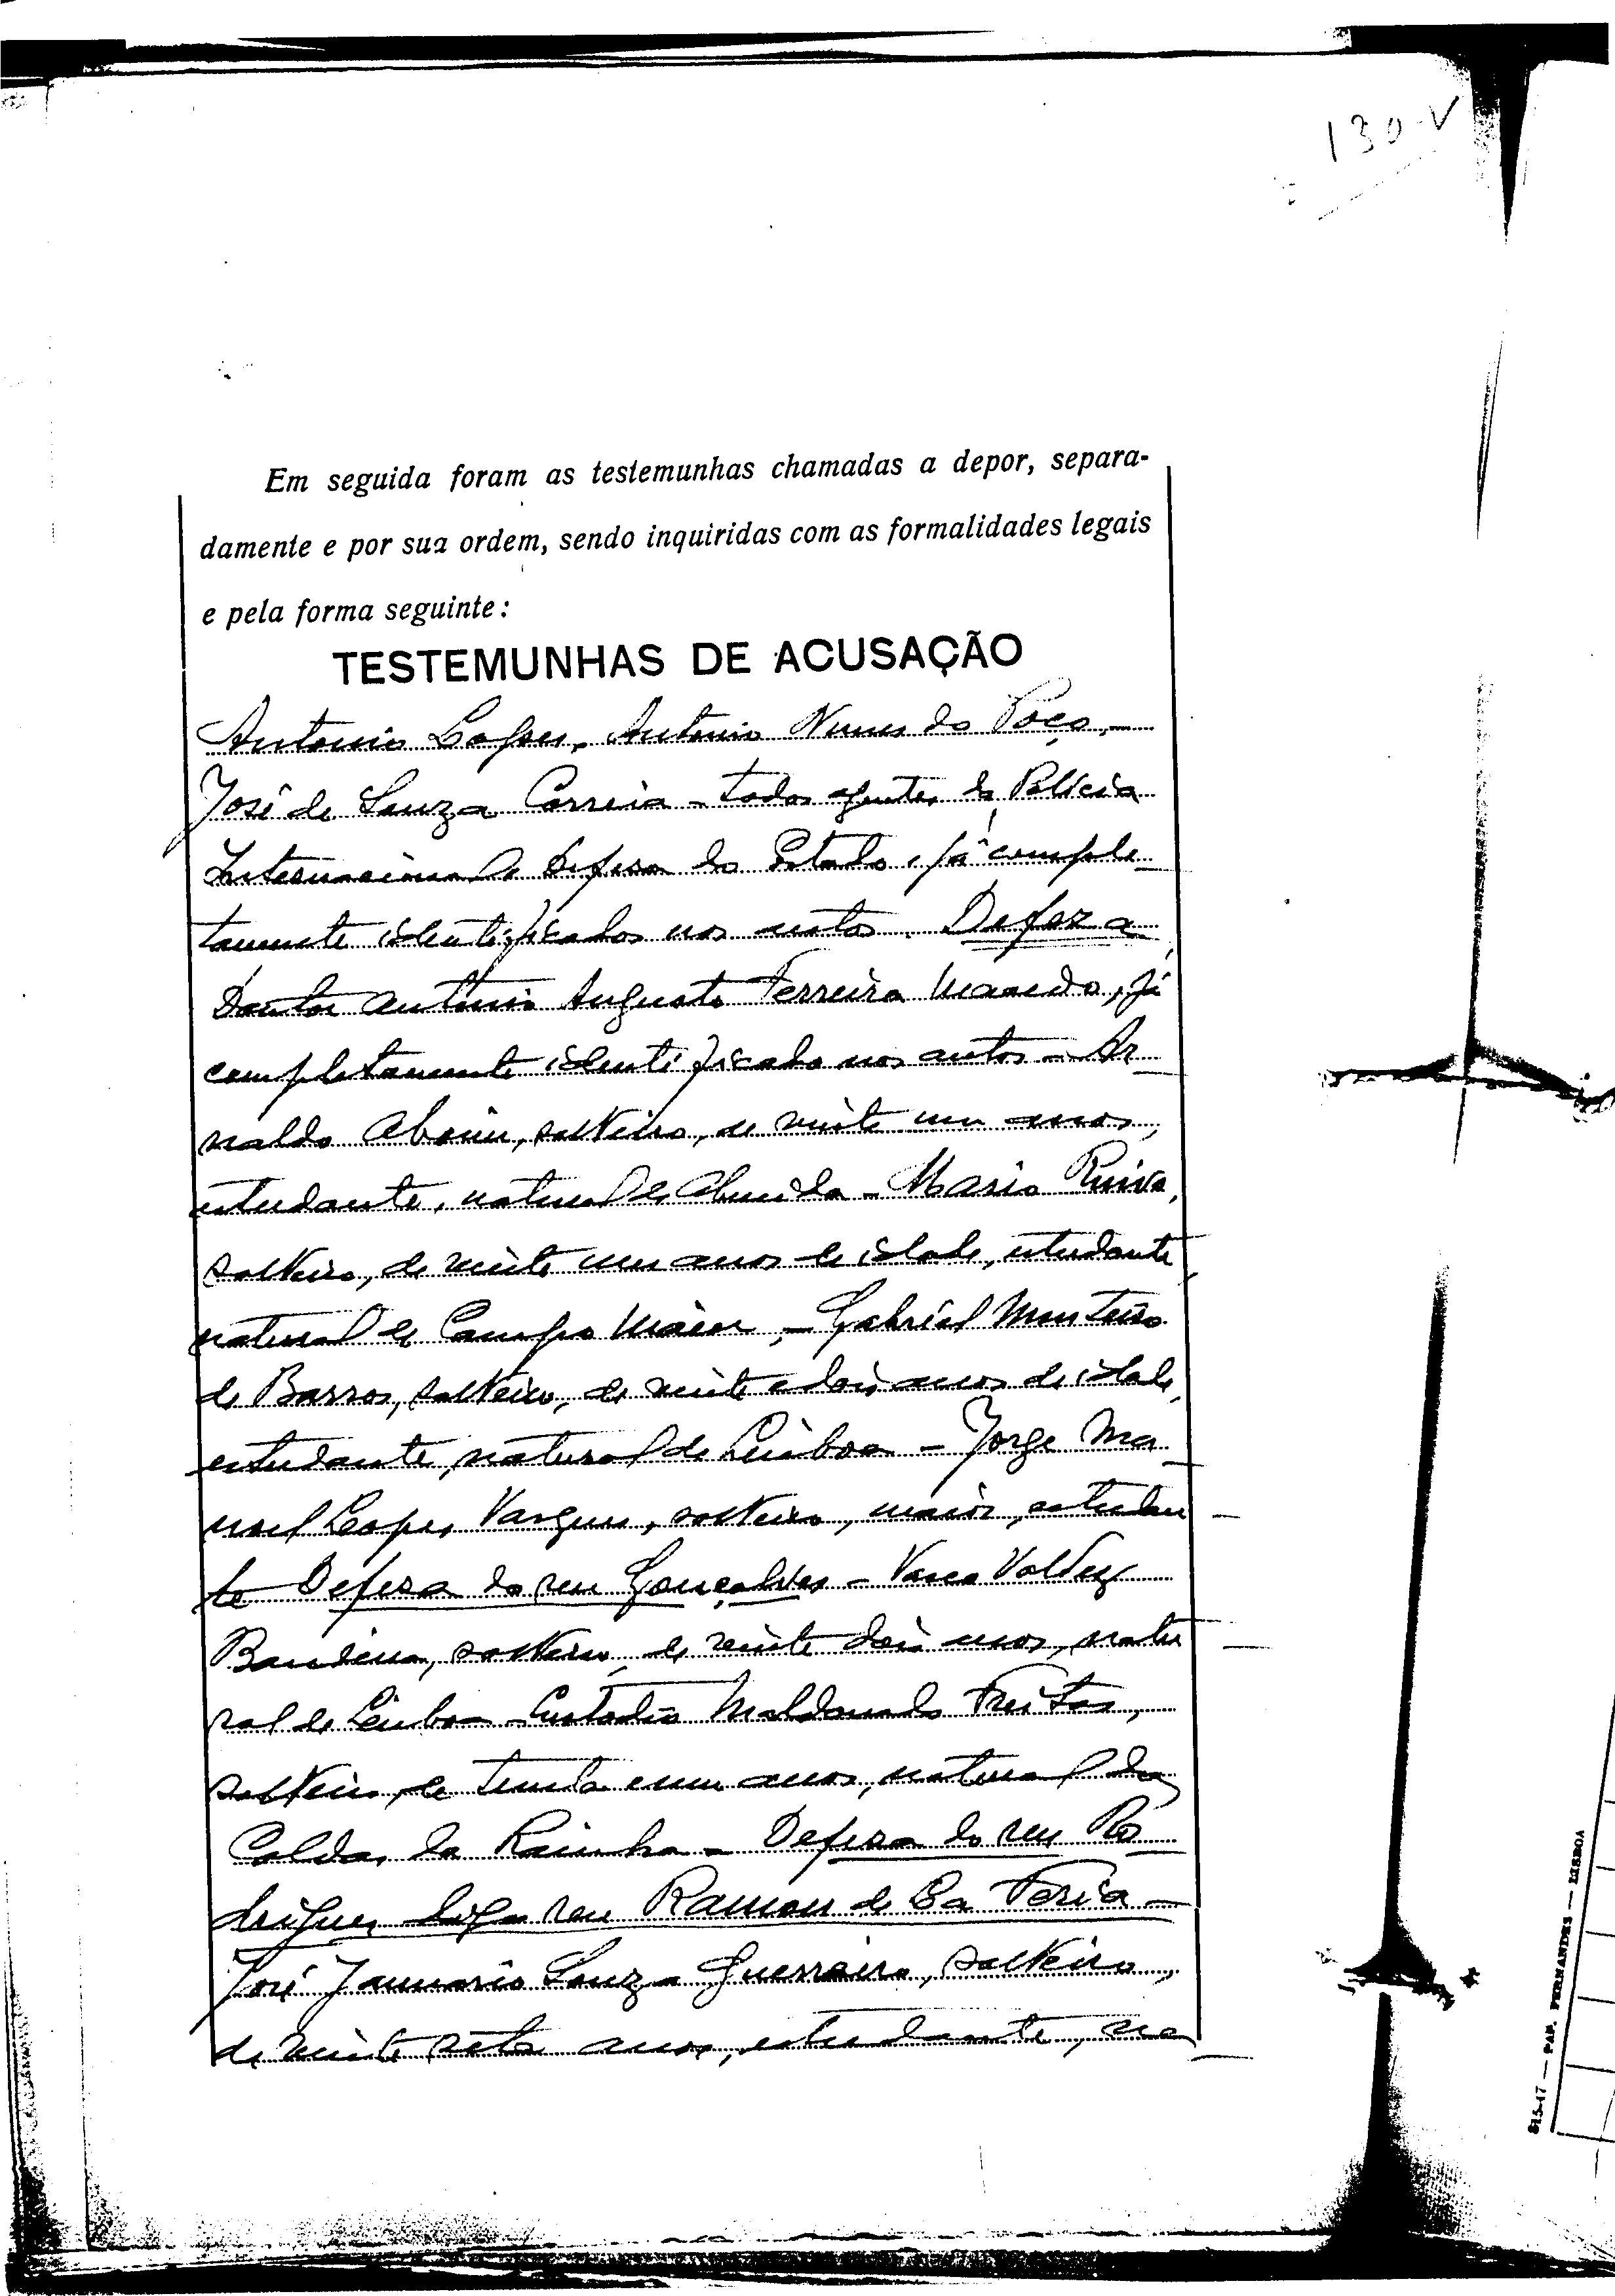 130-V
Em seguida foram as testemunhas chamadas a depor, separa-
damente e por sua ordem, sendo inquiridas com as formalidades legais
e pela forma seguinte:
TESTEMUNHAS DE ACUSAÇÃO
Antonio Lopes, Antonio Nunes do Poço,
José de Souza Correia - todos agentes da Policia
Internacional de Defesa do Estado, já comple
tamente identificados nos autos. Defeza
Doutor Antonio Augusto Ferreira Macedo, já
completamente identificado nos autos - Ar
naldo Aboim, solteiro, de vinte um anos,
estudante, natural de Almeida - Mario Ruivo,
solteiro, de vinte um anos de idade, estudante
natural de Campo Maior, - Gabriel Monteiro
de Barros, solteiro, de vinte e dois anos de idade,
estudante, natural de Lisboa - Jorge Ma
nuel Lopes Vargues, solteiro, maior, estudan
te Defesa do reu Gonçalves - Vasco Valdez
Bandeira, solteiro, de vinte dois anos, natu
ral de Lisboa - Custodio Maldonado Freitas,
solteiro, de trinta e um anos, natural das
Caldas da Rainha - Defesa do reu Ro
drigues reu Ramon de La Feria -
José Januario Souza Guerreiro, solteiro,
de vinte sete anos, estudante, na
815-17 — PAP. FERNANDES — LISBOA